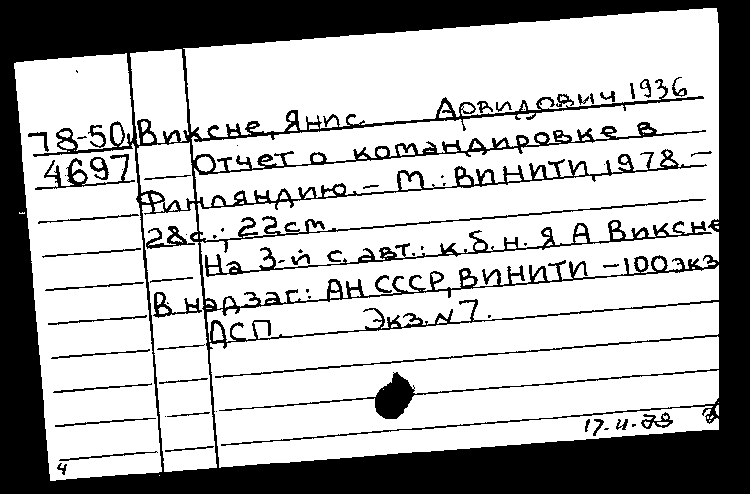 78-50 Виксне, Янис Арвидович, 1936
4697 Отчет о командировке в
Финляндию. – М.: ВИНИТИ, 1978. –
28с.; 22cm.
На 3-й с. авт.: к.б.н. Я А Виксне
В надзаг.: АН СССР, ВИНИТИ –100 экз
ДСП. Экз. N 7.
4